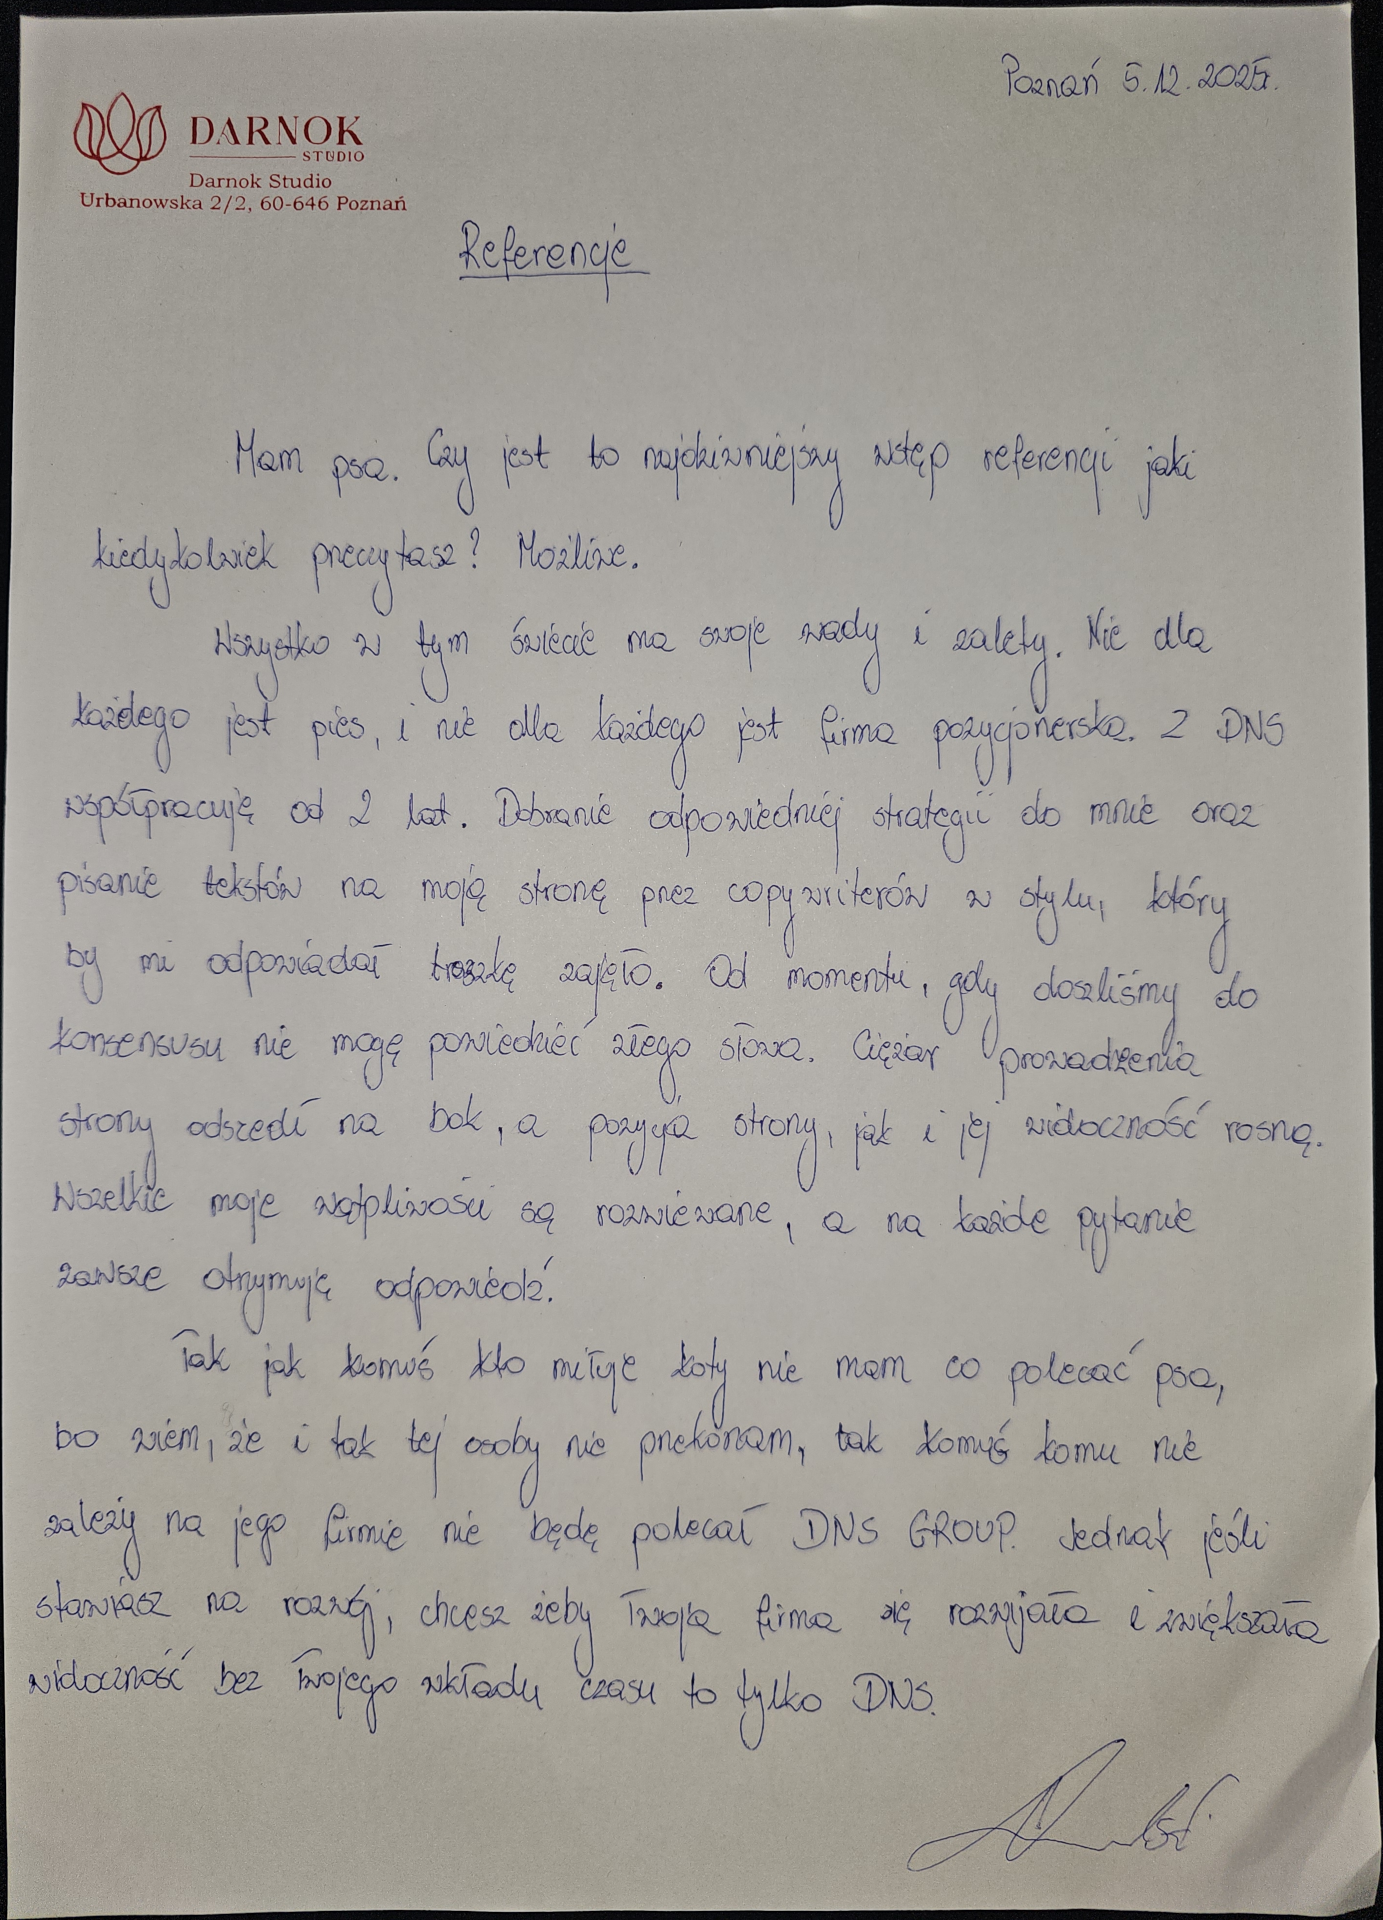 Poznań 5.12.2025r.
DARNOK
STUDIO
Darnok Studio
Urbanowska 2/2, 60-646 Poznań
Referencje
Mam psa. Czy jest to najdziwniejszy wstęp referencji jaki
kiedykolwiek przeczytasz? Możliwe.
Wszystko w tym świecie ma swoje wady i zalety. Nie dla
każdego jest pies, i nie dla każdego jest firma pozycjonerska. Z DNS
współpracuję od 2 lat. Dobranie odpowiedniej strategii do mnie oraz
pisanie tekstów na moją stronę przez copywriterów w stylu, który
by mi odpowiadał troszkę zajęło. Od momentu, gdy doszliśmy do
konsensusu nie mogę powiedzieć złego słowa. Ciężar prowadzenia
strony odszedł na bok, a pozycja strony, jak i jej widoczność rosną.
Wszelkie moje wątpliwości są rozwiewane, a na każde pytanie
zawsze otrzymuję odpowiedź.
Tak jak komuś kto miłuje koty nie mam co polecać psa,
bo wiem, że i tak tej osoby nie przekonam, tak komuś komu nie
zależy na jego firmie nie będę polecał DNS GROUP. Jednak jeśli
stawiasz na rozwój, chcesz żeby Twoja firma się rozwijała i zwiększała
widoczność bez Twojego wkładu czasu to tylko DNS.